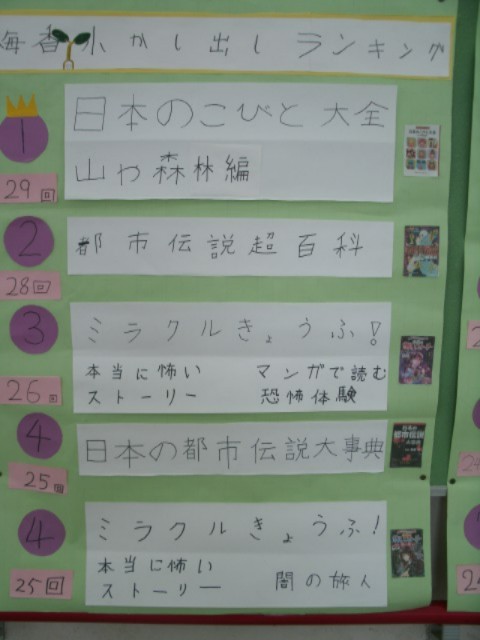 海香小かし出しランキング
1
日本のこびと大全
山や森林編
29回
2
都市伝説超百科
28回
3
ミラクルきょうふ!
本当に怖い
ストーリー
マンガで読む
恐怖体験
26回
4
日本の都市伝説大事典
25回
4
ミラクルきょうふ!
本当に怖い
ストーリー
闇の旅人
25回